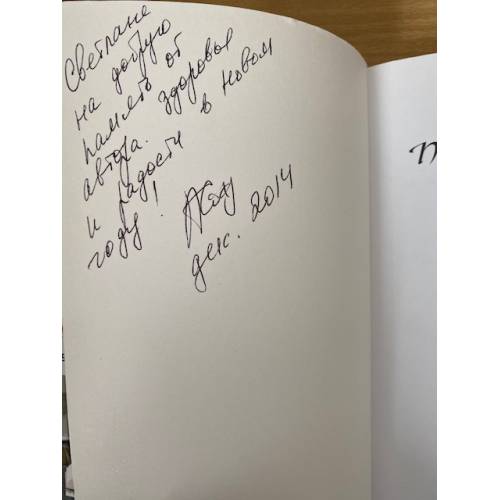 Светлане
на добрую
память от
автора. Здоровья
и радости в Новом
году!
дек. 2014